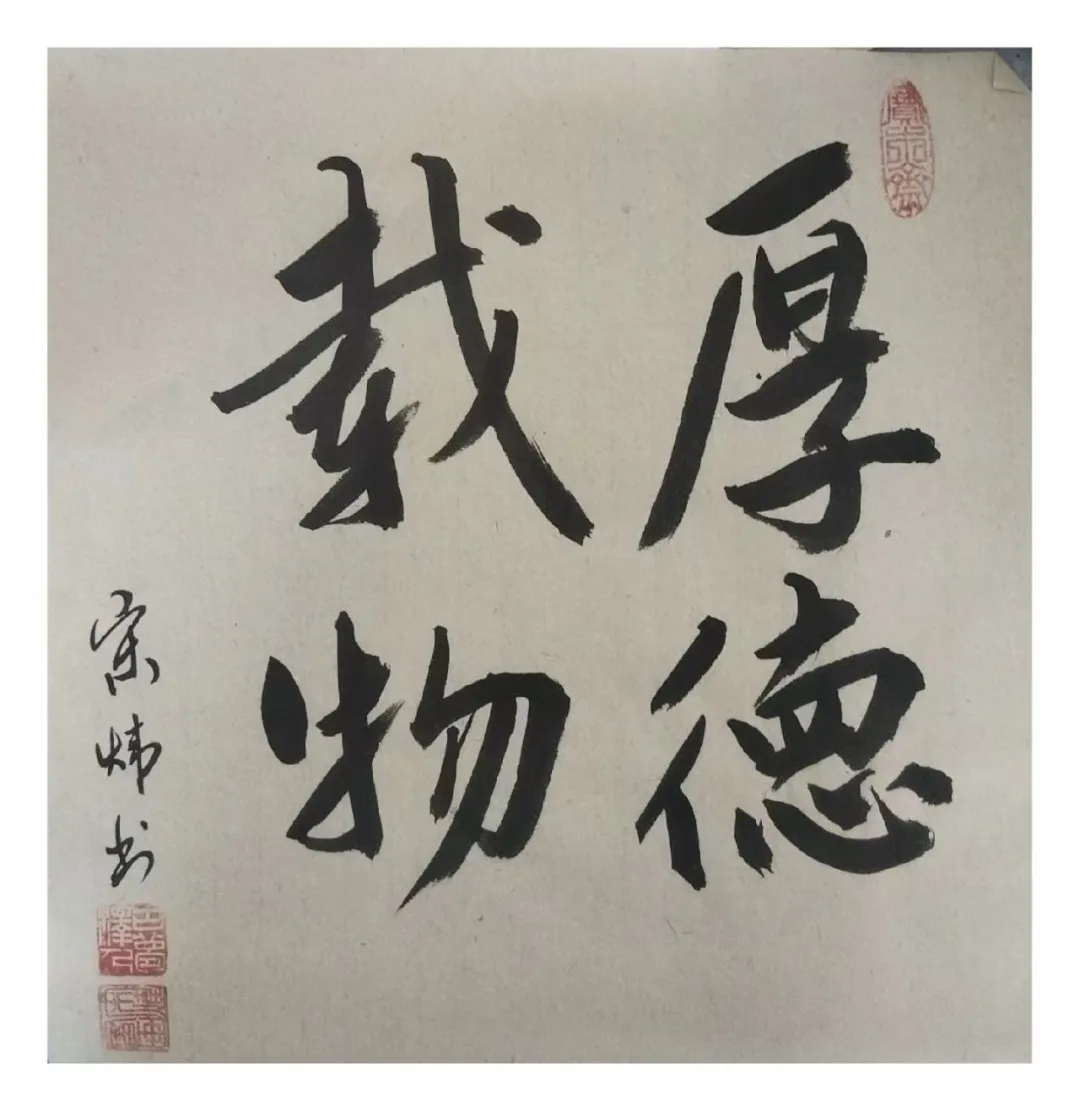 厚德
载物
宋炜书